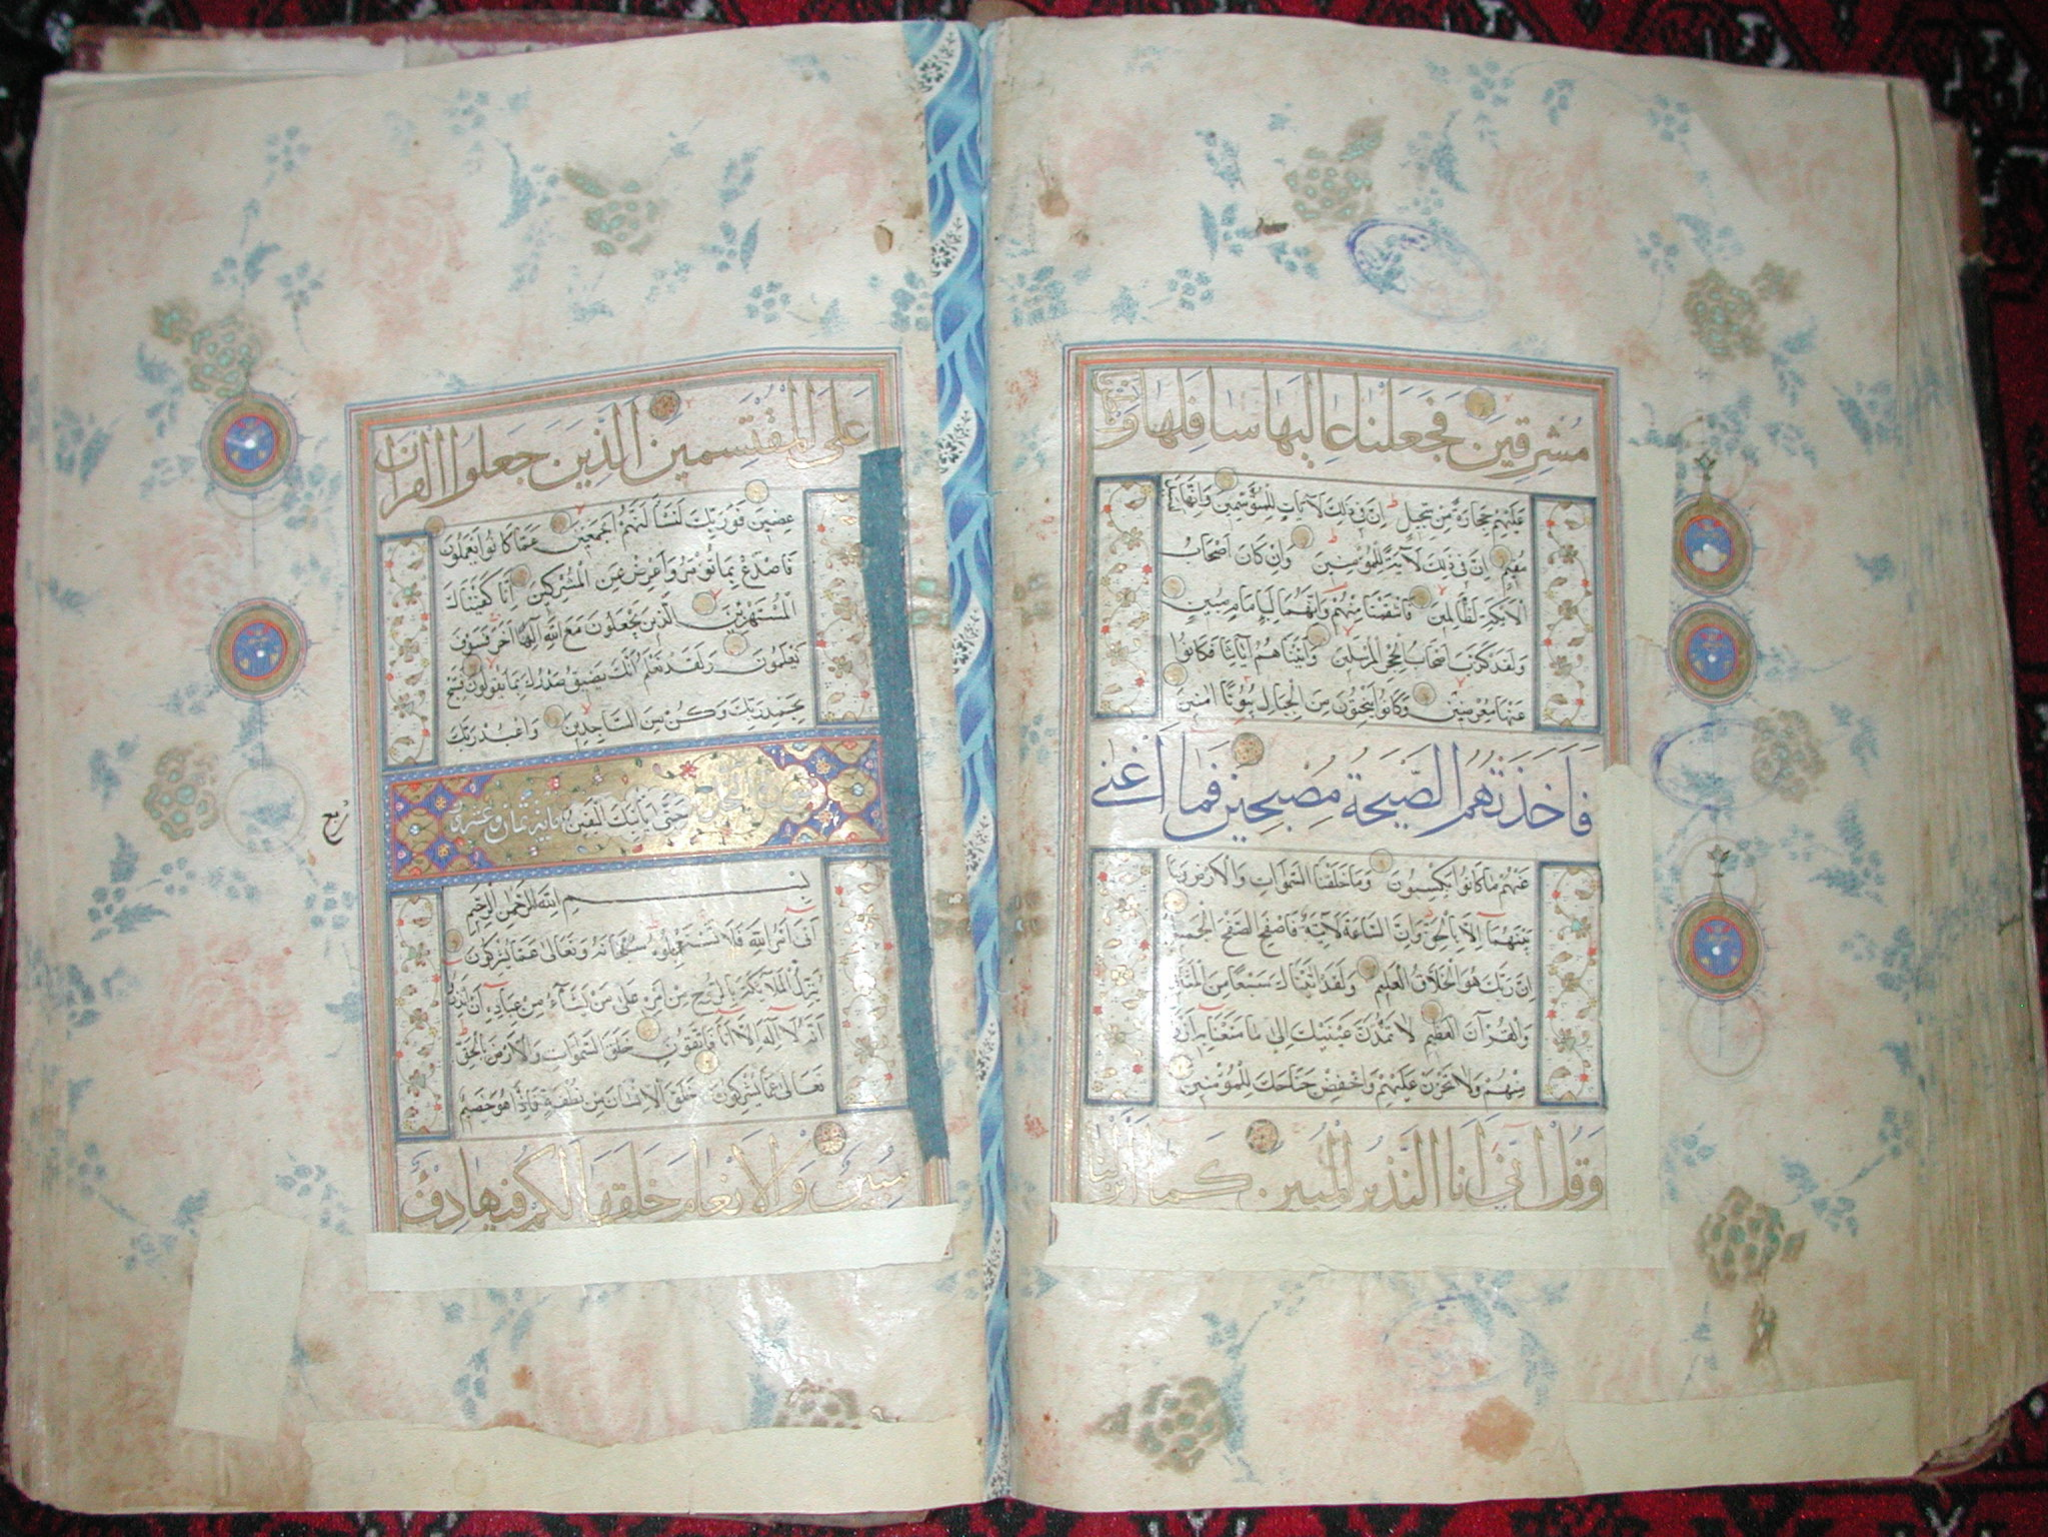 مُشرِقين فَجَعَلنا عاليها سافلها وامطرنا
عليهم حجارة من سجيل ان في ذلك لآيات للمتوسمين وانها
مقيم ان في ذلك لآية للمؤمنين وان كان اصحاب
الايكة لظالمين فانتقمنا منهم وانهما لبامام مبين
ولقد كذب اصحاب الحجر المرسلين واتيناهم آياتنا فكانوا
عنها معرضين وكانوا ينحتون من الجبال بيوتا امنين
فَاَخَذَتهُمُ الصَّيحَةُ مُصبِحين فَما اَغنى
عنهم ما كانوا يكسبون وما خلقنا السموات والارض وما
بينهما الا بالحق وان الساعة لآتية فاصفح الصفح الجميل
ان ربك هو الخلاق العليم ولقد اتيناك سبعا من المثاني
والقرآن العظيم لا تمدن عينيك الى ما متعنا به ازواجا
منهم ولا تحزن عليهم واخفض جناحك للمؤمنين
وَقُل اِنّي اَنا النَّذيرُ المُبين كَما اَنزَلنا
عَلَى المُقتَسِمين الَّذينَ جَعَلوا القران
عضين فوربك لنسألنهم اجمعين عما كانوا يعملون
فاصدع بما تؤمر واعرض عن المشركين انا كفيناك
المستهزئين الذين يجعلون مع الله الها اخر فسوف
يعلمون ولقد نعلم انك يضيق صدرك بما يقولون فسبح
بحمد ربك وكن من الساجدين واعبد ربك
حتى يأتيك اليقين
سورة النحل مايه ثمان وعشرون
ربع
بسم الله الرحمن الرحيم
اتى امر الله فلا تستعجلوه سبحانه وتعالى عما يشركون
ينزل الملائكة بالروح من امره على من يشاء من عباده ان انذروا
انه لا اله الا انا فاتقون خلق السموات والارض بالحق
تعالى عما يشركون خلق الانسان من نطفة فاذا هو خصيم
مُبين وَالاَنعامَ خَلَقَها لَكُم فيها دِفء